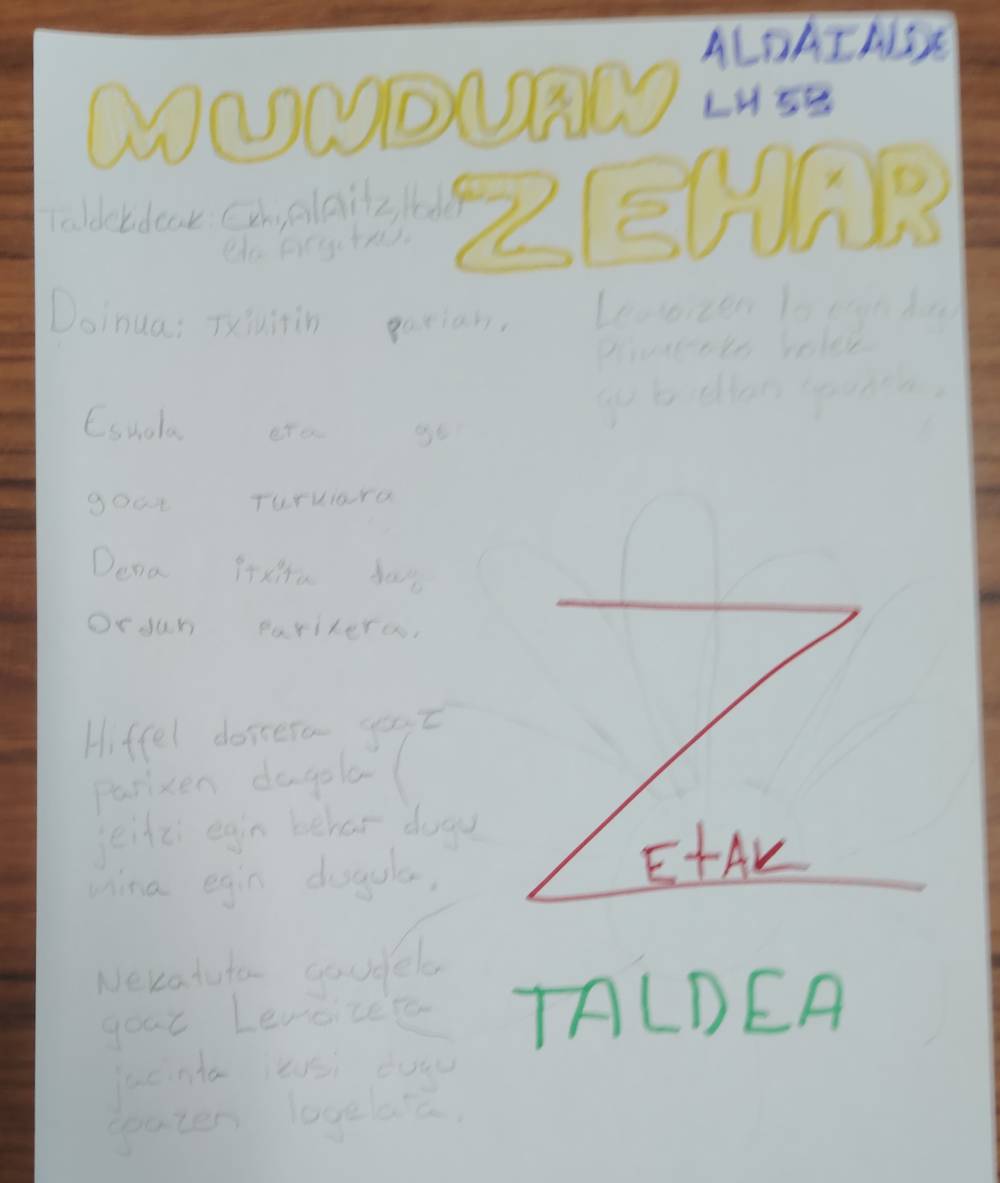 ALDAIALDE
LH 5B
MUNDUAN
ZEHAR
Taldekideak: Ekhi, Alaitz, Hodei
eta Argitxu.
Doinua: Txiuitin parian.
Eskola eta ge
goaz Turkiara
Dena itxita dag
Ordun Parixera.
Hiffel dorrera goaz
parixen dagola
jeitzi egin behar dugu
mina egin dugula.
Nekatuta gaudela
goaz Lemoizera
jacinta ikusi dugu
goazen logelara.
Lemoizen lo egin dugu
Primerako
gu bueltan gaudela.
ZETAK
TALDEA